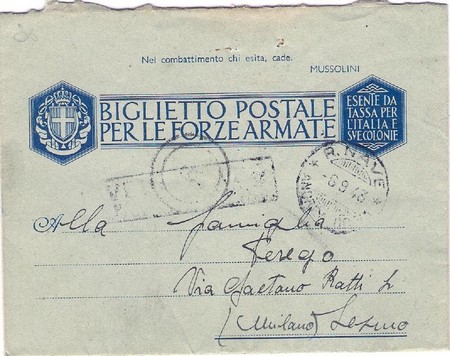 Nel combattimento chi esita, cade.
MUSSOLINI
BIGLIETTO POSTALE
PER LE FORZE ARMATE
ESENTE DA
TASSA PER
L'ITALIA E
SVE COLONIE
* R. NAVE *
-6 9 43
Alla famiglia
Perego
Via Gaetano Ratti
(Milano) Lesmo